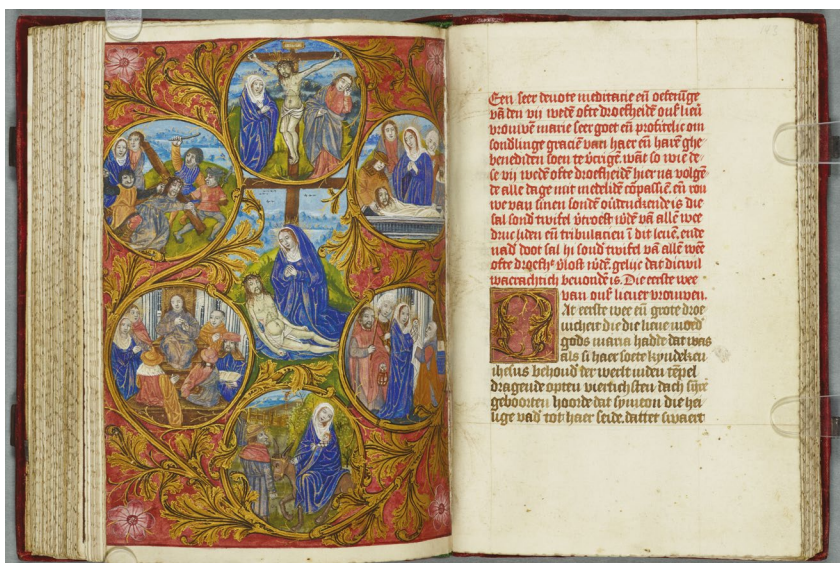 Een seer devote meditacie en̄ oefenīge
vā den vij wedē ofte droefheidē ons̄ lieu̅
vrouwē marie seer goet en̄ profitelic om
sondlinge graciē van haer en̄ harē ghe
benediden soen te v̄crigē. wāt so wie de-
se vij weedē ofte droefheidē hier na volgē
de alle dage mit medelidē cōpassiē en̄ rou
we van sinen sondē ov̄denckende is die
sal sond̄ twifel v̄troest w̄dē vā allē wee
druc liden en̄ tribulacien ī dit leuē. ende
nad̄ doot sal hi sond̄ twifel vā allē weē
ofte droefhʳ v̄lost w̄dē gelijc dat dicwil
waerachtich beuondē is. Die eerste wee
van ons̄ lieuer vrouwen.
At eerste wee en̄ grote droe
uicheit die die lieue moed̄
gods maria hadde dat was
als si haer soete kyndeken
ihesus behoud̄ der werlt inden tēpel
dragende opten viertichsten dach sijnr̄
geboorten hoorde dat symeon die hei
lige vad̄ tot haer seide. dattet swaert